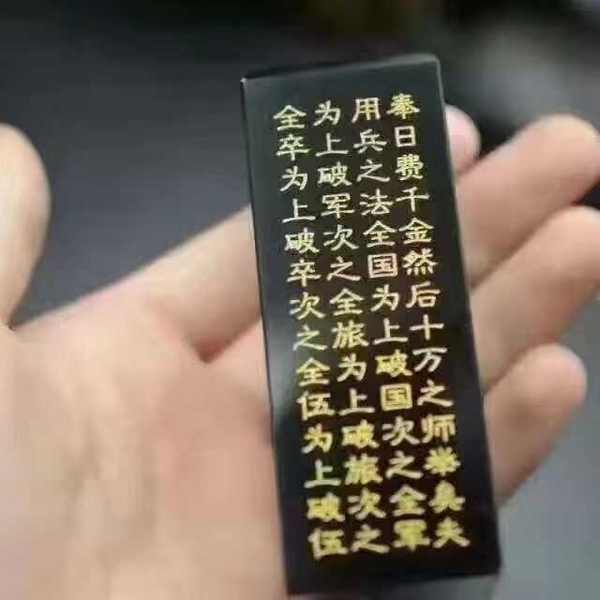 奉日费千金然后十万之师举矣夫
用兵之法全国为上破国次之全军
为上破军次之全旅为上破旅次之
全卒为上破卒次之全伍为上破伍